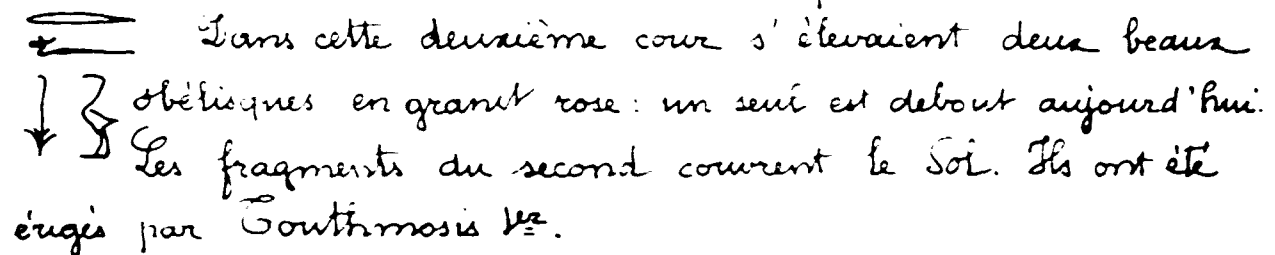 Dans cette deuxième cour s'élevaient deux beaux
obélisques en granit rose : un seul est debout aujourd'hui.
Les fragments du second couvrent le Sol. Ils ont été
érigés par Touthmosis Ier.